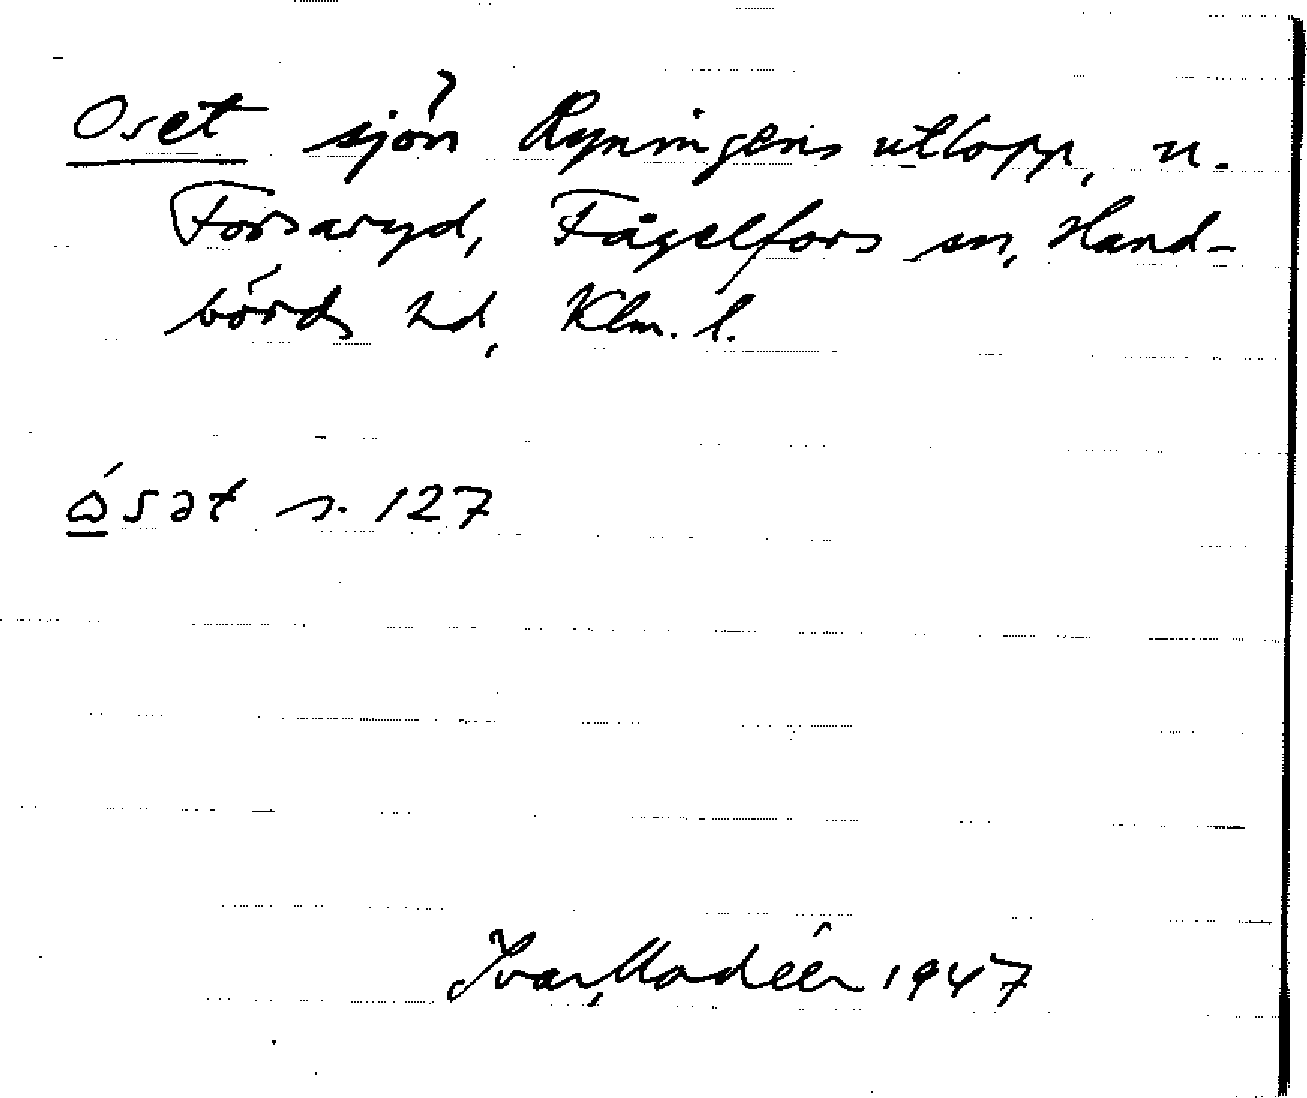 Oset sjön Ryningens utlopp, n.
Forsaryd, Fågelfors sn, Hand-
börds hd, Klm. l.
ó̲sət s. 127
Ivar Modéer 1947